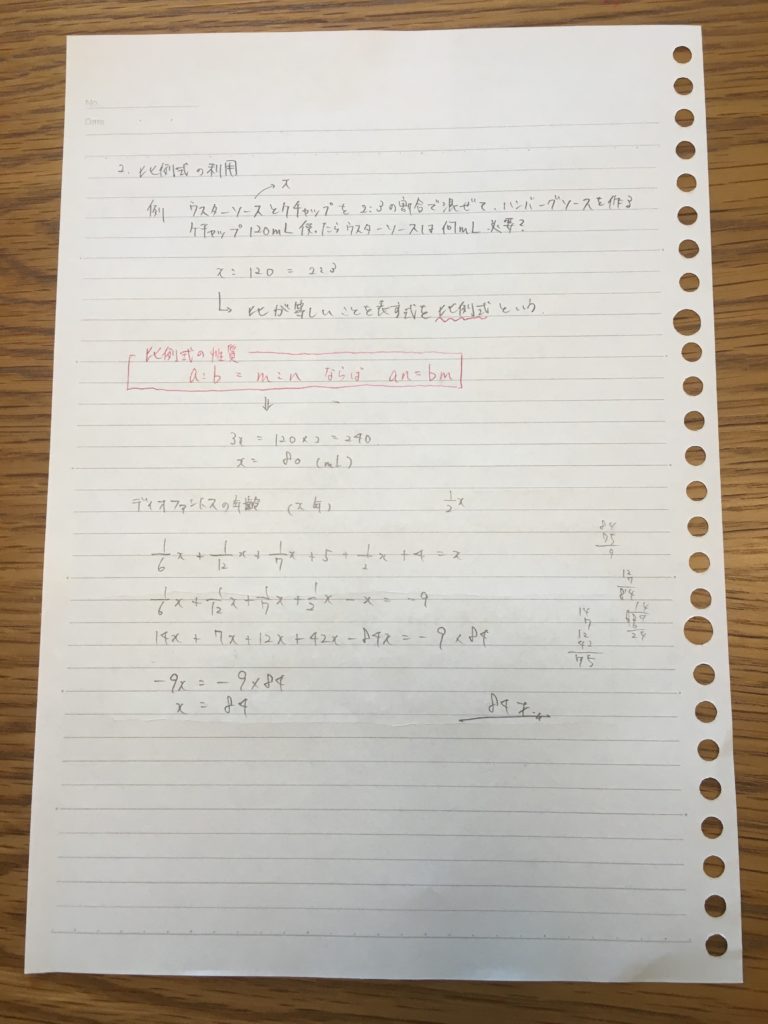 No.
Date
2. 比例式の利用
x
例 ウスターソースとケチャップを 2:3の割合で混ぜて、ハンバーグソースを作る
ケチャップ120mL使ったらウスターソースは何mL必要?
x : 120 = 2:3
↳ 比が等しいことを表す式を比例式という
比例式の性質
a:b = m:n ならば an=bm
⇓
3x = 120×2 = 240
x = 80 (mL)
ディオファントスの年齢 (x年) 1/2x
1/6x + 1/12x + 1/7x + 5 + 1/2x + 4 = x
1/6x + 1/12x + 1/7x + 1/2x - x = -9
14x + 7x + 12x + 42x - 84x = -9×84
-9x = -9×84
x = 84
84才
84
75
9
12
7
84
14
7
12
42
75